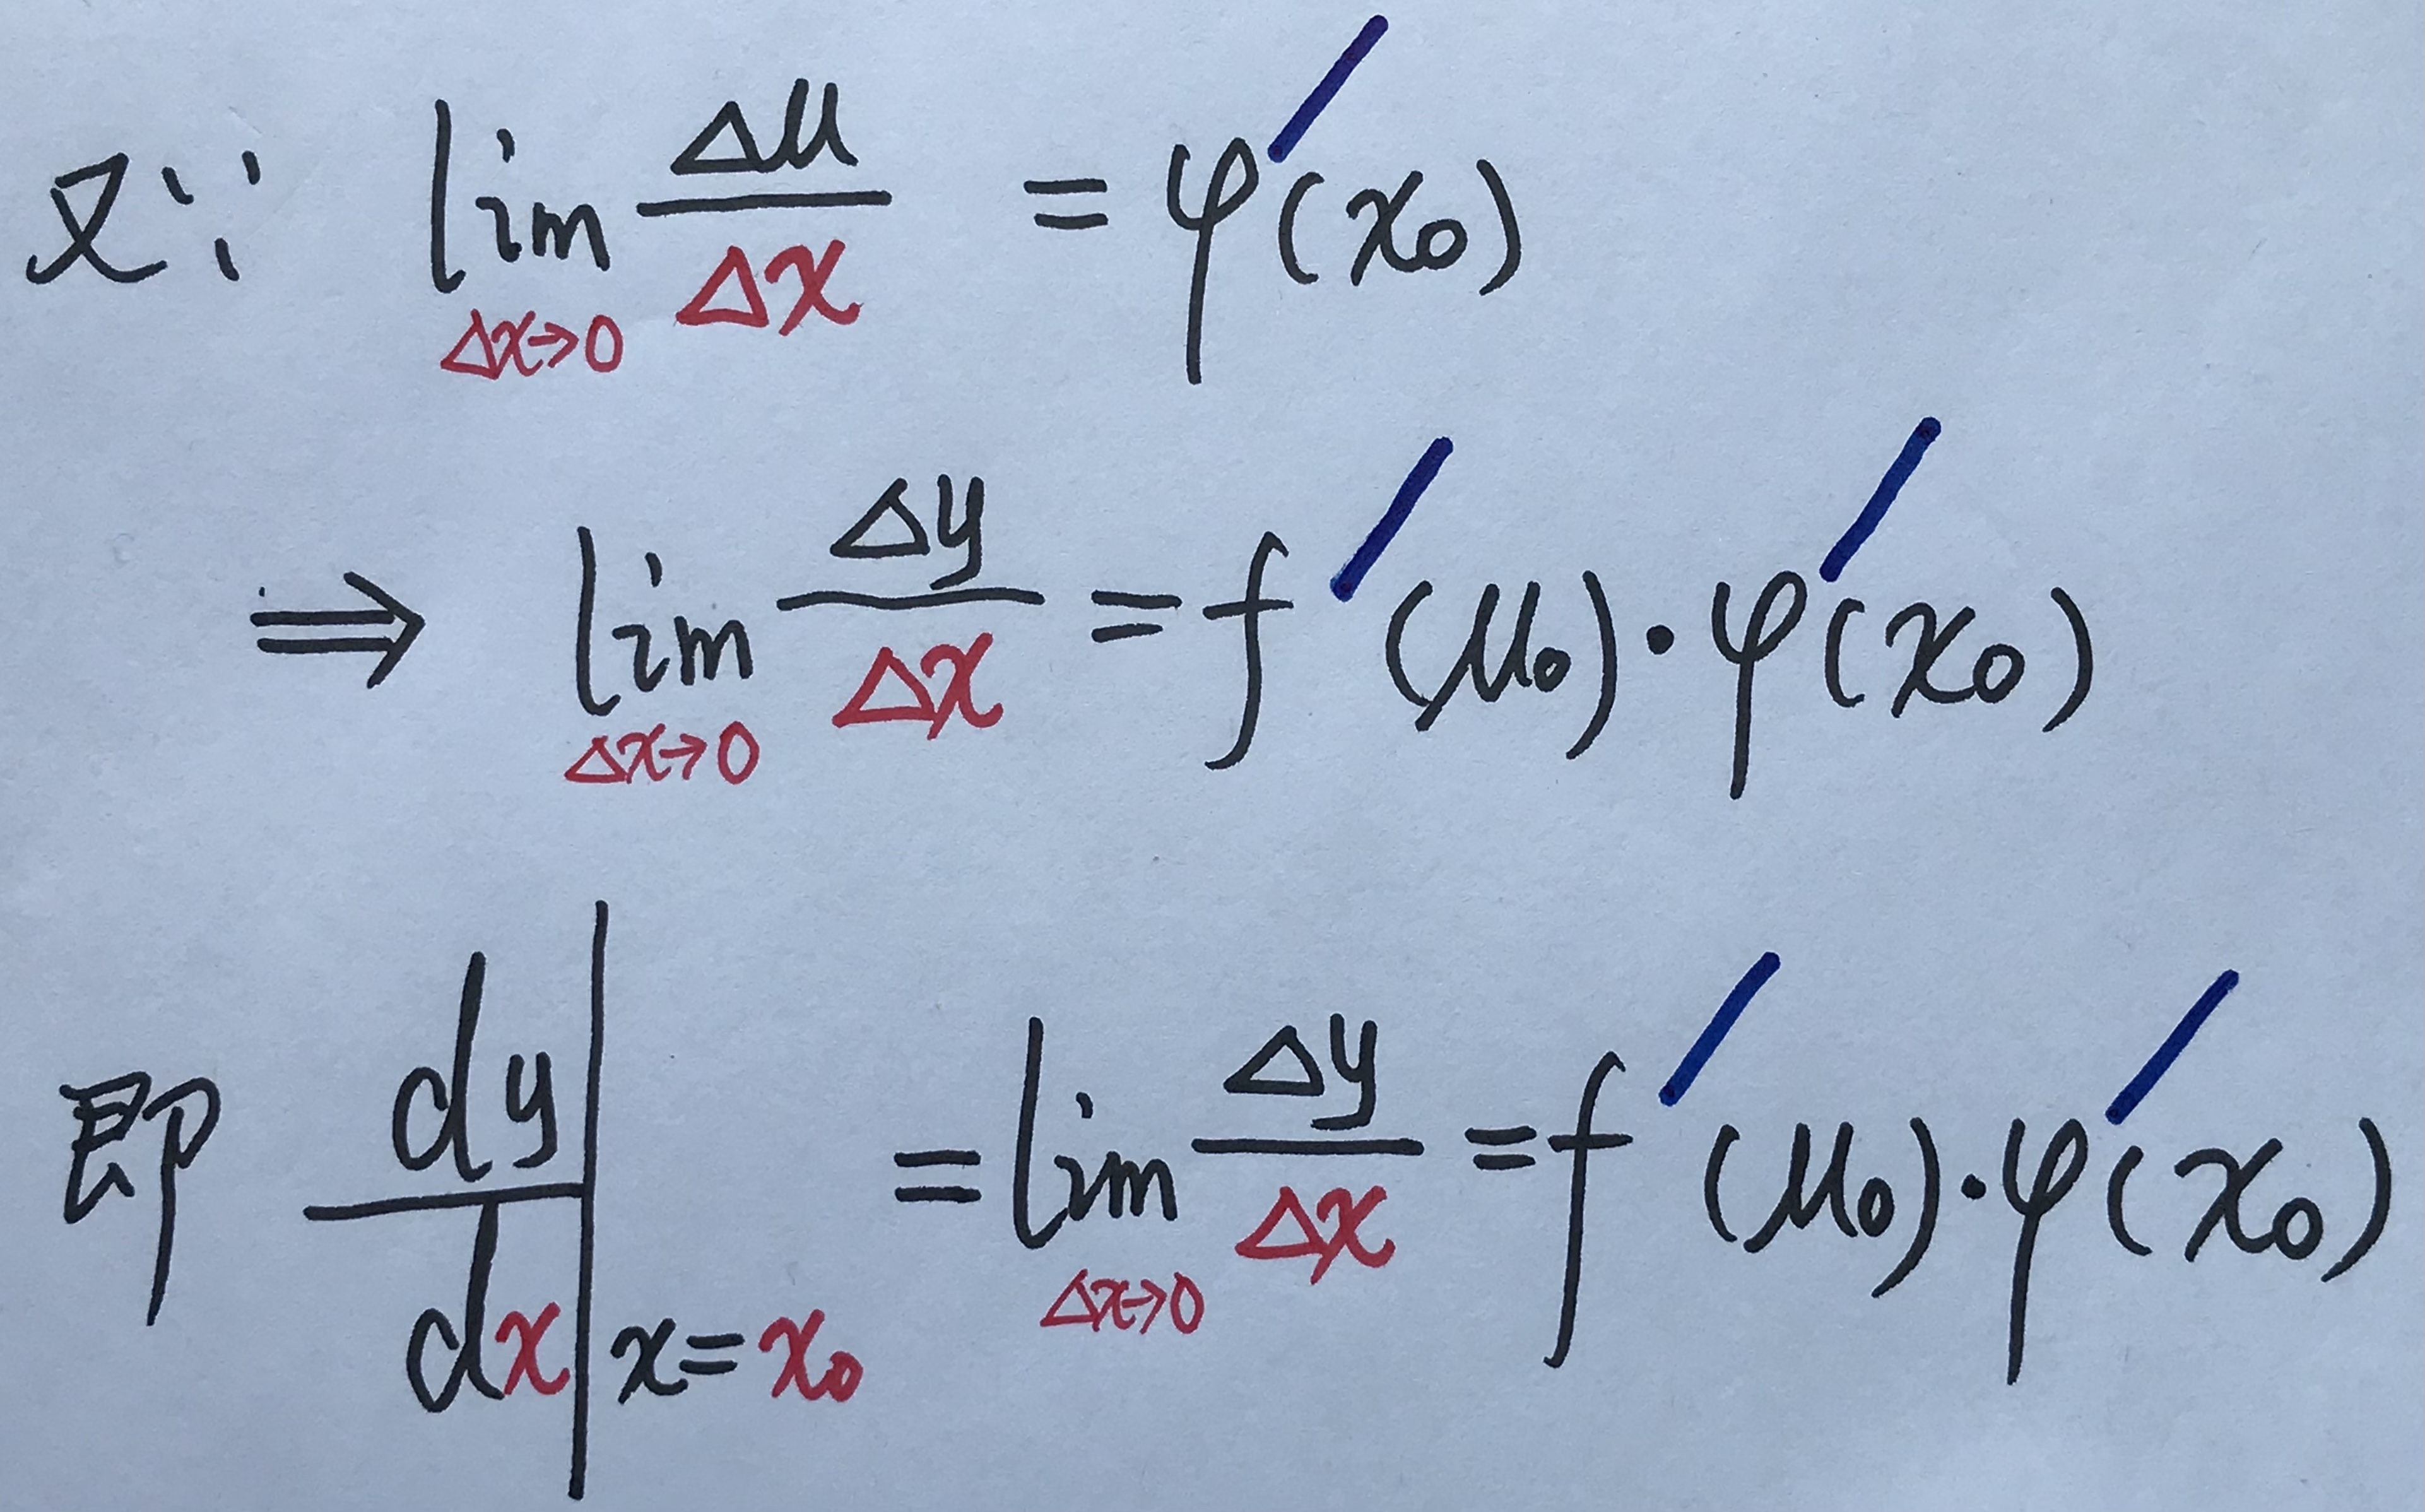 又∵ lim_{Δx→0} Δμ/Δx = φ′(x₀)
⇒ lim_{Δx→0} Δy/Δx = f′(μ₀)·φ′(x₀)
即 dy/dx|_{x=x₀} = lim_{Δx→0} Δy/Δx = f′(μ₀)·φ′(x₀)